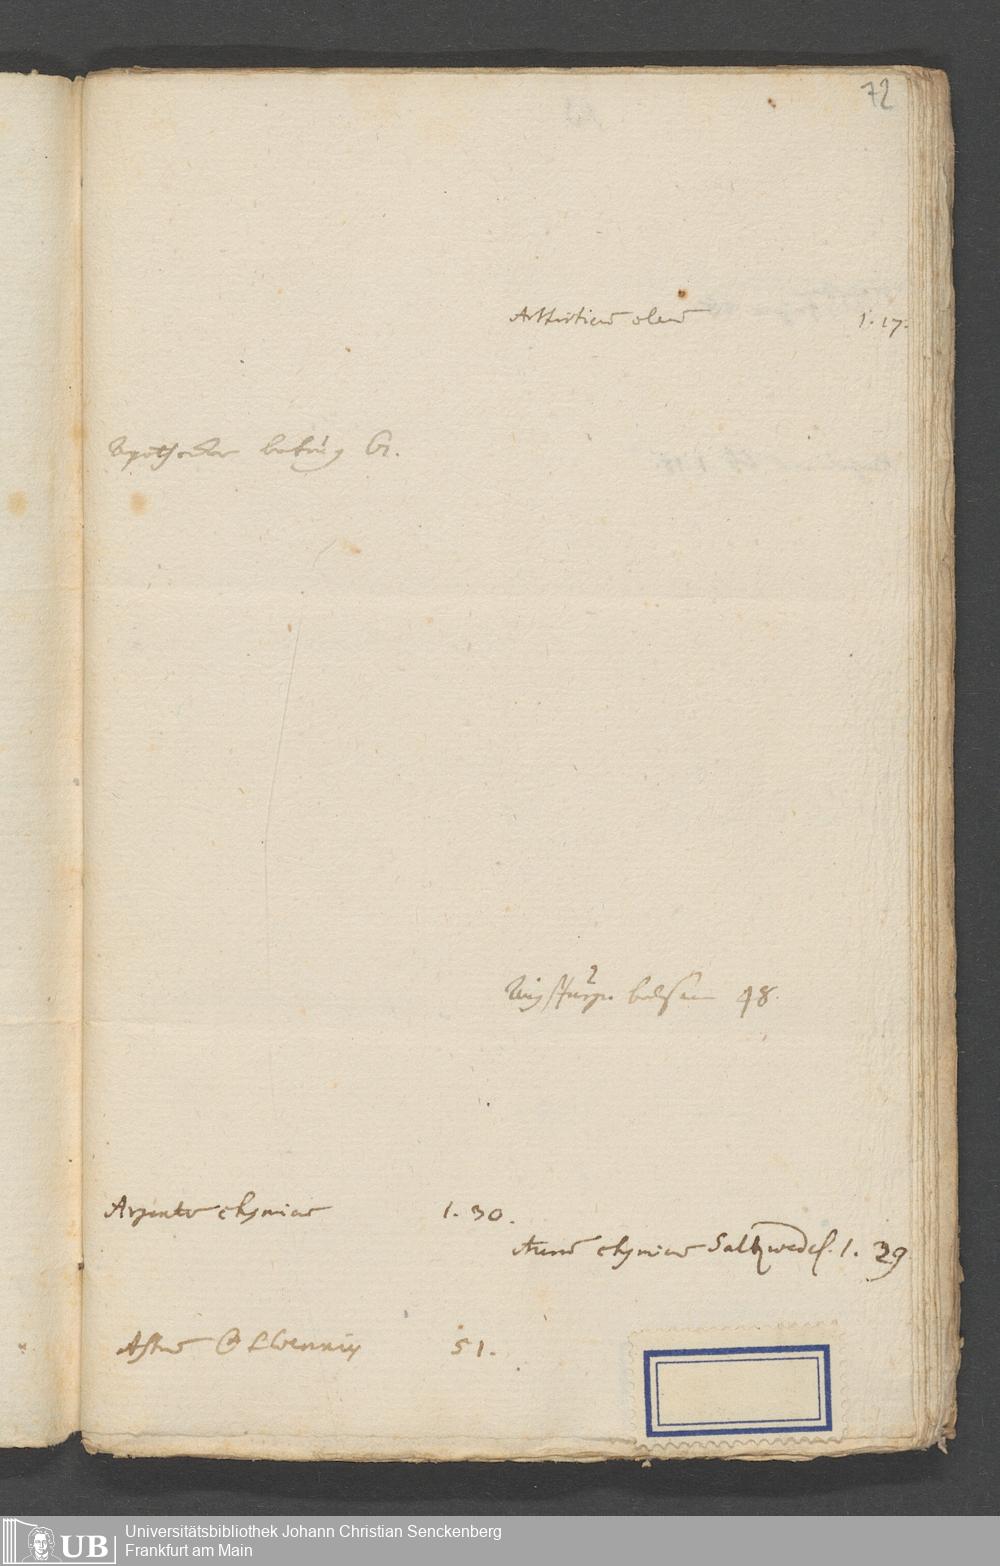 72
Arthriticum oleum 1.17.
Apothecker betrug 61.
balsam 48.
Argentum chymicum 1.30.
Aurum chymicum Saltzwedel. 1. 39
Astrum 51.
UB
Universitätsbibliothek Johann Christian Senckenberg
Frankfurt am Main